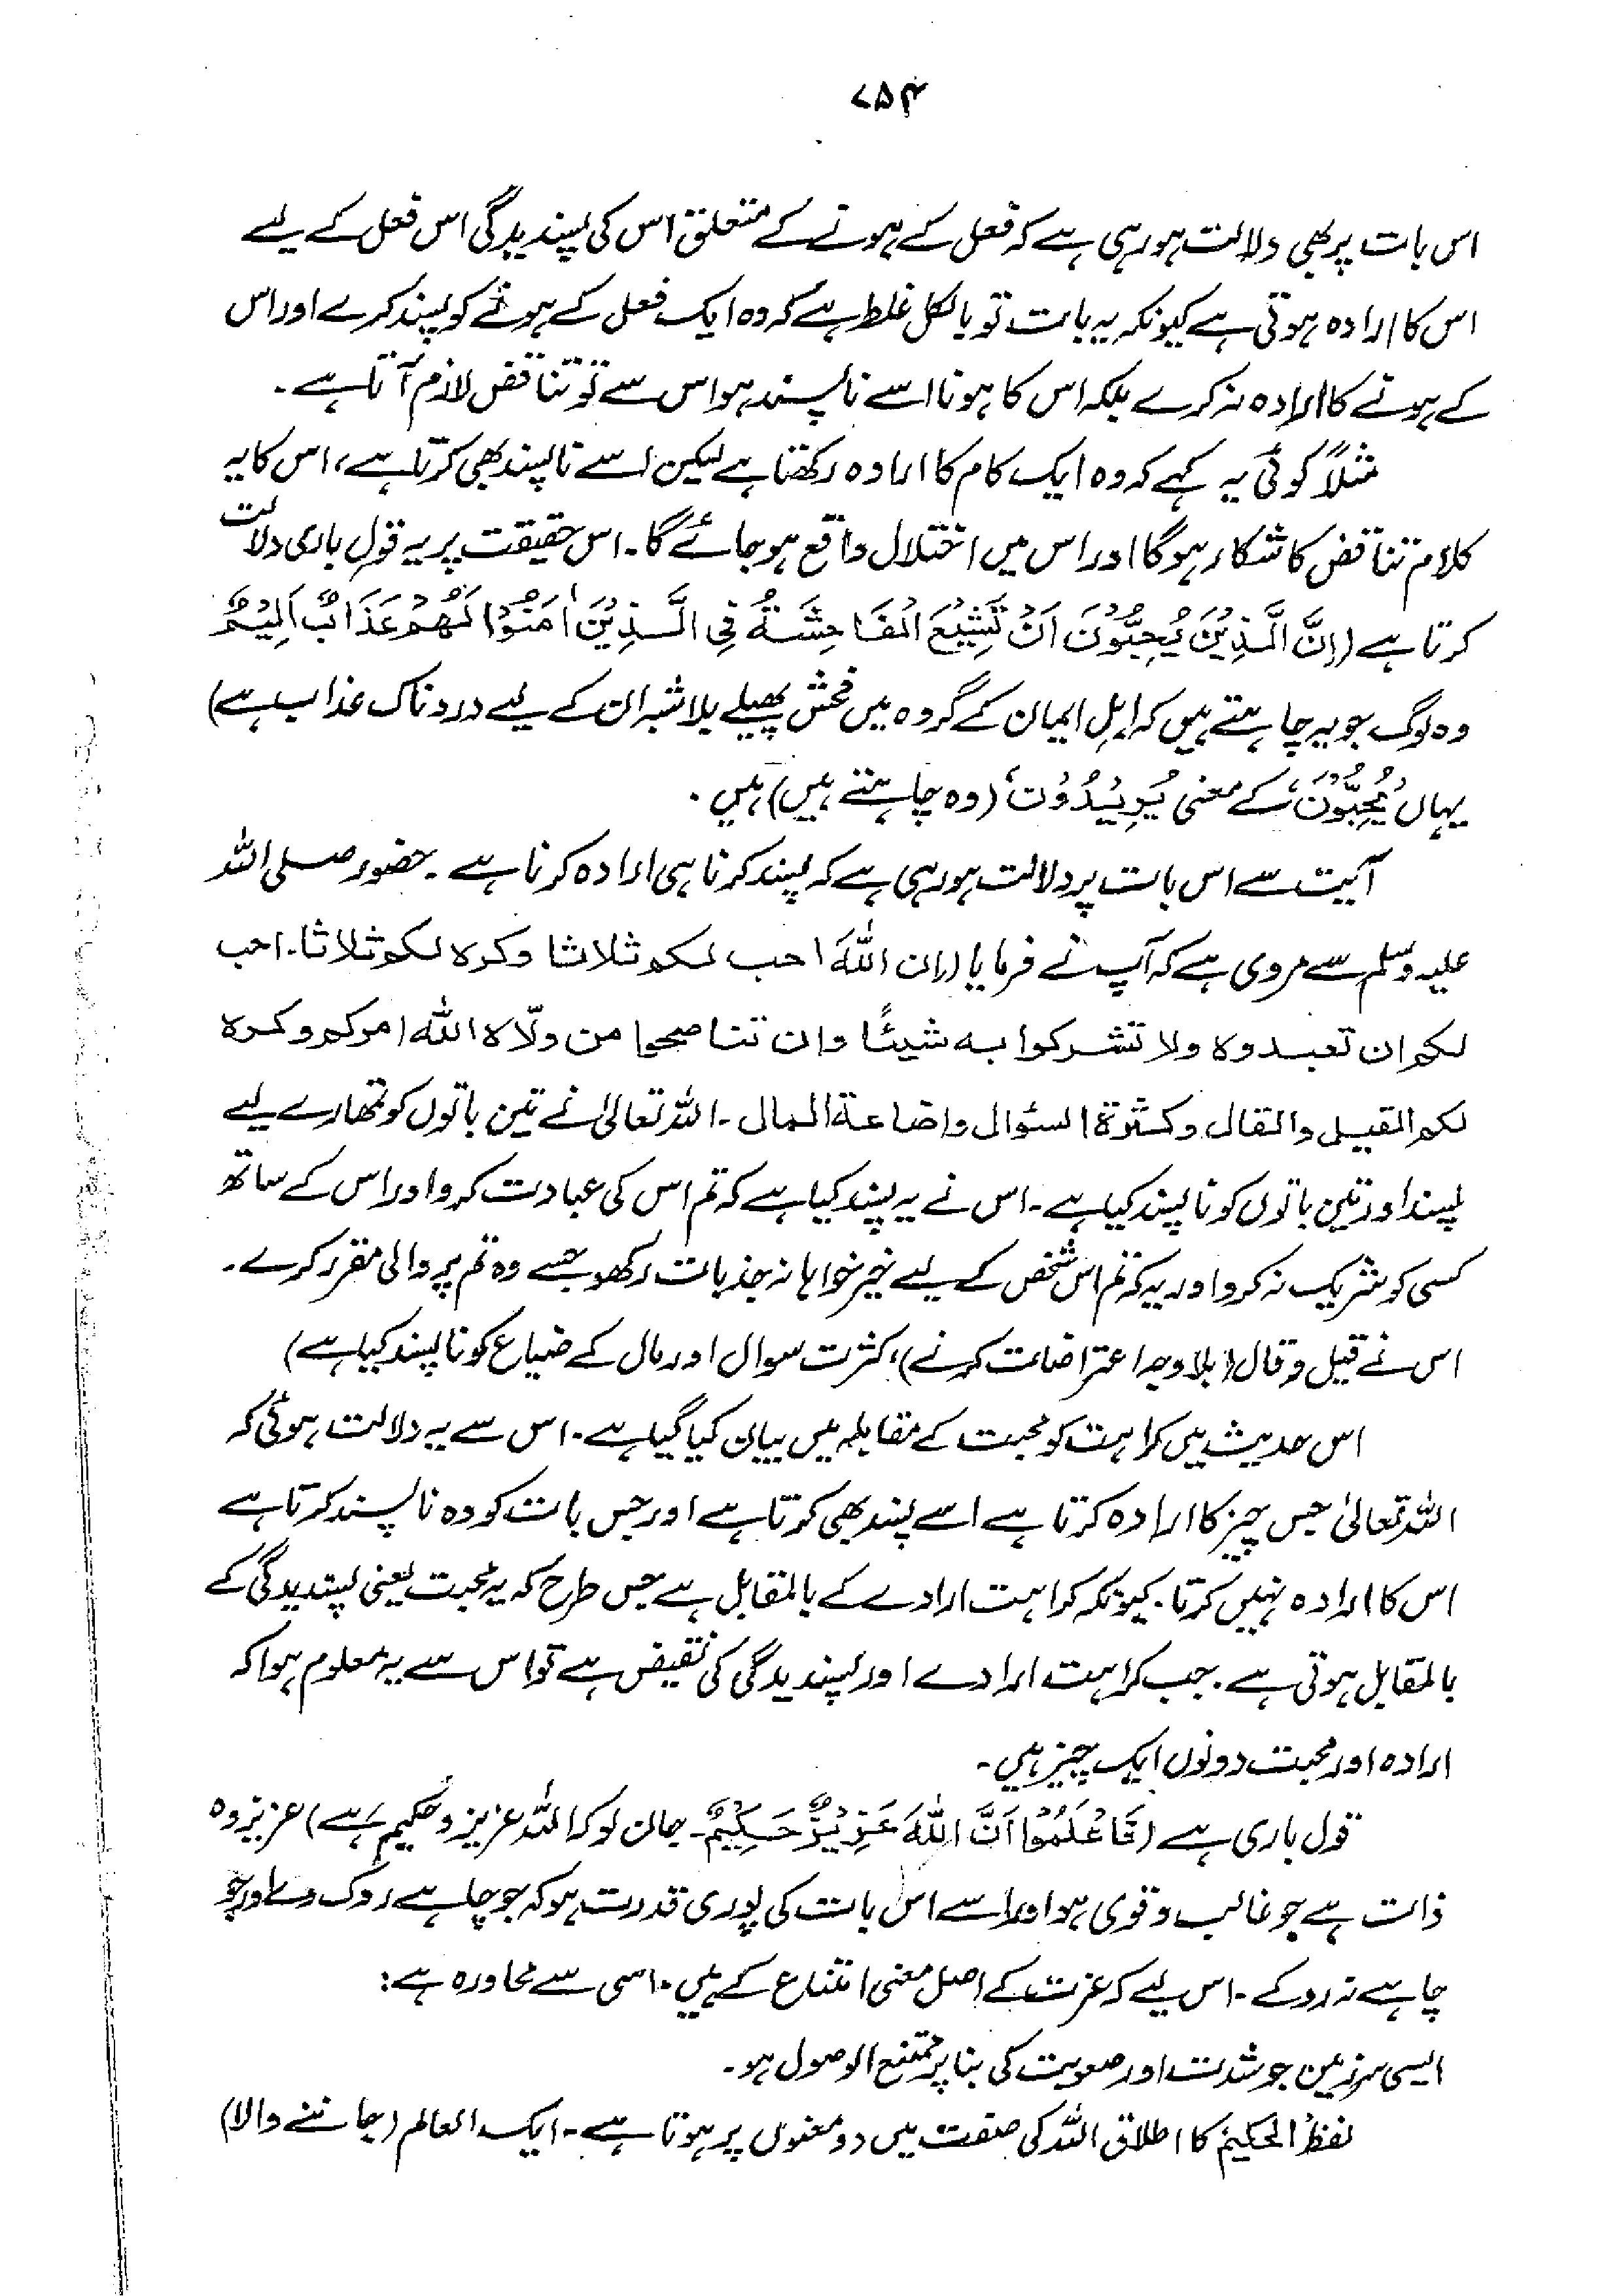 ۷۵۴
اس بات پر بھی دلالت ہو رہی ہے کہ فعل کے ہونے کے متعلق اس کی پسندیدگی اس فعل کے لیے
اس کا ارادہ ہوتی ہے کیونکہ یہ بات تو بالکل غلط ہے کہ وہ ایک فعل کے ہونے کو پسند کرے اور اس
کے ہونے کا ارادہ نہ کرے بلکہ اس کا ہونا اسے ناپسند ہو اس سے تو تناقض لازم آتا ہے۔
مثلاً کوئی یہ کہے کہ وہ ایک کام کا ارادہ رکھتا ہے لیکن اسے ناپسند بھی کرتا ہے، اس کا یہ
کلام تناقض کا شکار ہوگا اور اس میں اختلال واقع ہو جائے گا۔ اس حقیقت پر یہ قولِ باری دلالت
کرتا ہے (اِنَّ الَّذِيْنَ يُحِبُّوْنَ اَنْ تَشِيْعَ الْفَاحِشَةُ فِي الَّذِيْنَ اٰمَنُوْا لَهُمْ عَذَابٌ اَلِيْمٌ
وہ لوگ جو یہ چاہتے ہیں کہ اہلِ ایمان کے گروہ میں فحش پھیلے بلاشبہ ان کے لیے دردناک عذاب ہے)
یہاں 'يُحِبُّوْنَ' کے معنی 'يُرِيْدُوْنَ' (وہ چاہتے ہیں) ہیں۔
آیت سے اس بات پر دلالت ہو رہی ہے کہ پسند کرنا ہی ارادہ کرنا ہے۔ حضور صلی اللہ
علیہ وسلم سے مروی ہے کہ آپ نے فرمایا (ان اللّٰهَ احب لكم ثلاثا وكره لكم ثلاثا۔ احب
لكم ان تعبدوه ولا تشركوا به شيئًا وان تناصحوا من ولّاه الله امركم وكره
لكم القيل والقال وكثرة السئوال واضاعة المال۔ اللہ تعالیٰ نے تین باتوں کو تمہارے لیے
پسند اور تین باتوں کو ناپسند کیا ہے۔ اس نے یہ پسند کیا ہے کہ تم اس کی عبادت کرو اور اس کے ساتھ
کسی کو شریک نہ کرو اور یہ کہ تم اس شخص کے لیے خیرخواہانہ جذبات رکھو جسے وہ تم پر والی مقرر کرے۔
اس نے قیل و قال (بلا وجہ اعتراضات کرنے)، کثرت سوال اور مال کے ضیاع کو ناپسند کیا ہے)
اس حدیث میں کراہت کو محبت کے مقابلہ میں بیان کیا گیا ہے۔ اس سے یہ دلالت ہوئی کہ
اللہ تعالیٰ جس چیز کا ارادہ کرتا ہے اسے پسند بھی کرتا ہے اور جس بات کو وہ ناپسند کرتا ہے
اس کا ارادہ نہیں کرتا۔ کیونکہ کراہت ارادے کے بالمقابل ہے جس طرح کہ یہ محبت یعنی پسندیدگی کے
بالمقابل ہوتی ہے۔ جب کراہت ارادے اور پسندیدگی کی نقیض ہے تو اس سے یہ معلوم ہوا کہ
ارادہ اور محبت دونوں ایک چیز ہیں۔
قول باری ہے (فَاعْلَمُوْا اَنَّ اللّٰهَ عَزِيْزٌ حَكِيْمٌ۔ جان لو کہ اللہ عزیز و حکیم ہے) عزیز وہ
ذات ہے جو غالب و قوی ہو اور اسے اس بات کی پوری قدرت ہو کہ جو چاہے روک دے اور جو
چاہے نہ روکے۔ اس لیے کہ عزت کے اصل معنی امتناع کے ہیں۔ اسی سے محاورہ ہے:
ایسی سرزمین جو شدت اور صعوبت کی بنا پر ممتنع الوصول ہو۔
لفظ 'الحکیم' کا اطلاق اللہ کی صفت میں دو معنوں پر ہوتا ہے۔ ایک العالم (جاننے والا)